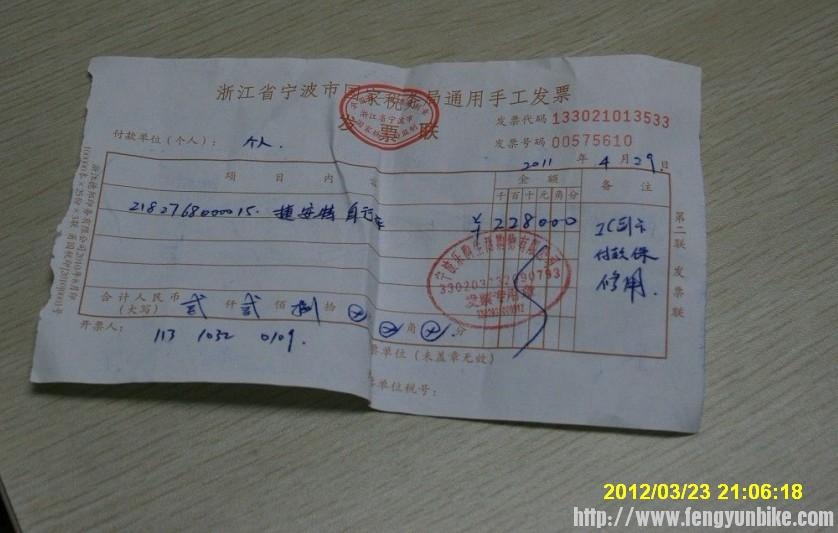 浙江省宁波市国家税务局通用手工发票
发票联
发票代码 133021013533
发票号码 00575610
付款单位(个人): 个人.
2011 年 4 月 29 日
项目内容
金额
千百十元角分
备注
2182768000015. 捷安特 自行车
¥228000
付款保
修用.
宁波乐购生活购物有限公司
330203
发票专用章
合计人民币
(大写) 贰仟贰佰捌拾⊗⊗角⊗分
开票人: 113 1032 0109.
票单位(未盖章无效)
单位税号:
第二联 发票联
2012/03/23 21:06:18
http://www.fengyunbike.com